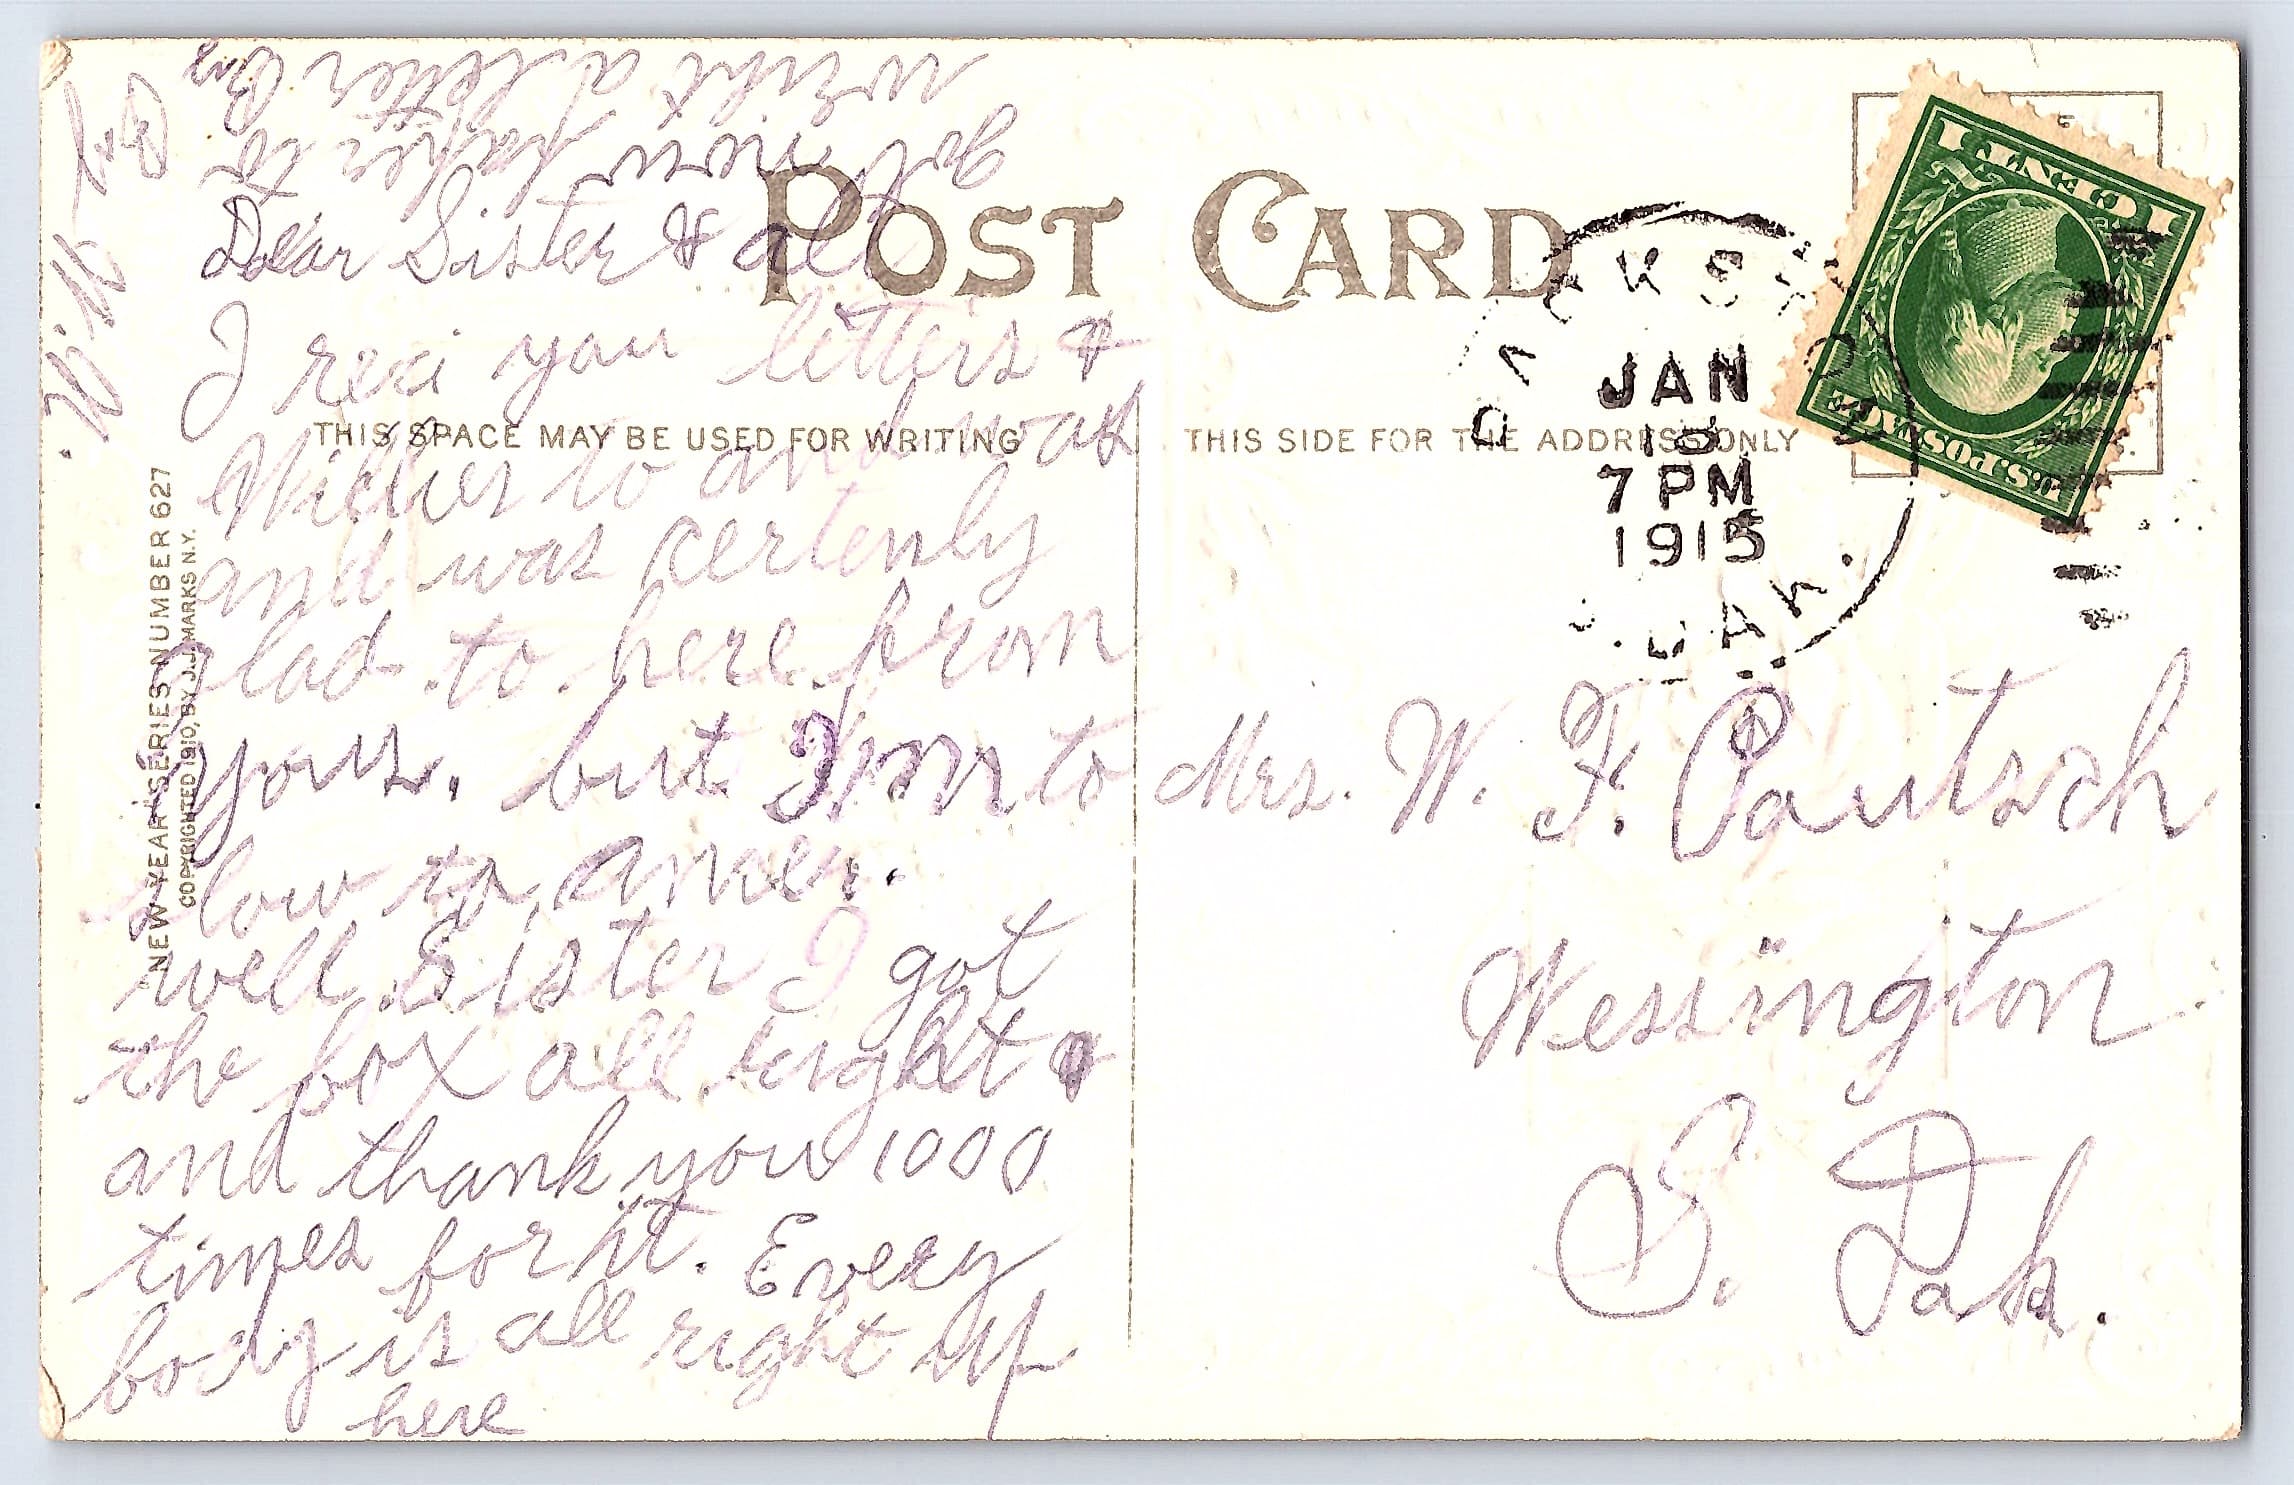 POST CARD
THIS SPACE MAY BE USED FOR WRITING
THIS SIDE FOR THE ADDRESS ONLY
NEW YEAR'S SERIES NUMBER 627
COPYRIGHTED 1910, BY J.J. MARKS N.Y.
Dear Sister & all
I reci you letters &
to and
and was certenly
glad to here from
yous. but I'm to
slow to anser.
well Sister I got
the box all right
and thank you 1000
times for it. Every
body is all right up
here
got now father to
write a letter By
By
Will
JAN
13
7 PM
1915
DAK.
U.S. POSTAGE
1 CENT 1
Mrs. W. F. Pautsch
Wessington
S. Dak.